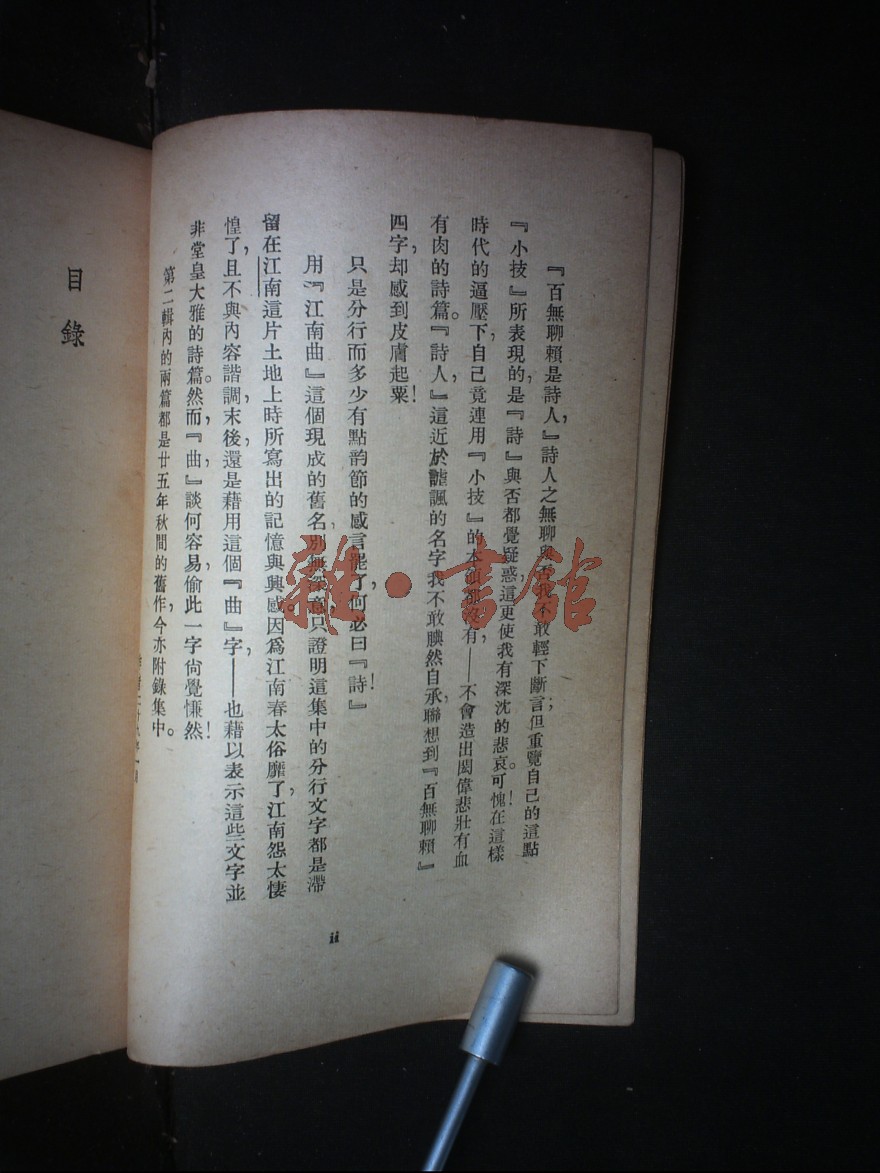 『百無聊賴是詩人，』詩人之無聊與否我不敢輕下斷言；但重覽自己的這點
『小技』所表現的是『詩』與否，都覺疑惑，這更使我有深沈的悲哀。可愧在這樣
時代的逼壓下，自己竟連用『小技』的本領都沒有，——不會造出閎偉悲壯有血
有肉的詩篇。『詩人，』這近於謔諷的名字我不敢腆然自承，聯想到『百無聊賴』
四字，却感到皮膚起粟！
只是分行而多少有點韵節的感言罷了，何必曰『詩』！
用『江南曲』這個現成的舊名，別無深意，只證明這集中的分行文字都是滯
留在江南這片土地上時所寫出的記憶與興感。因爲江南春太俗靡了，江南怨太悽
惶了，且不與內容諧調，末後，還是藉用這個『曲』字，——也藉以表示這些文字並
非堂皇大雅的詩篇。然而，『曲，』談何容易，偷此一字尙覺慊然！
第二輯內的兩篇都是廿五年秋間的舊作，今亦附錄集中。
ii
目錄
雜·書館